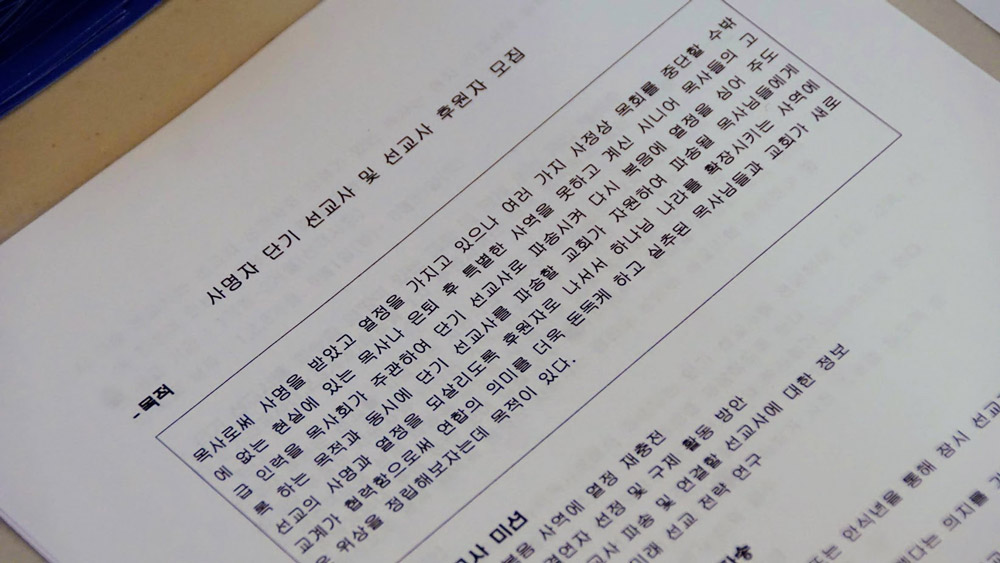 사명자 단기 선교사 및 선교사 후원자 모집
-목적
목사로써 사명을 받았고 열정을 가지고 있으나 여러 가지 사정상 목회를 중단할 수밖
에 없는 현실에 있는 목사나 은퇴 후 특별한 사역을 못하고 계신 시니어 목사들의 고
급 인력을 목사회가 주관하여 단기 선교사로 파송시켜 다시 복음에 열정을 심어 주도
록 하는 목적과 동시에 단기 선교사를 파송할 교회가 자원하여 파송될 목사님들에게
선교의 사명과 열정을 되살리도록 후원자로 나서서 하나님 나라를 확장시키는 사역에
교계가 협력함으로써 연합의 의미를 더욱 돈독케 하고 실추된 목사님들과 교회가 새로
운 위상을 정립해보자는데 목적이 있다.
교사 미션
복음 사역에 열정 재충전
결연자 선정 및 구제 활동 방안
교사 파송 및 연결할 선교사에 대한 정보
미래 선교 전략 연구
파송
또는 안식년을 통해 잠시 선교
의지를